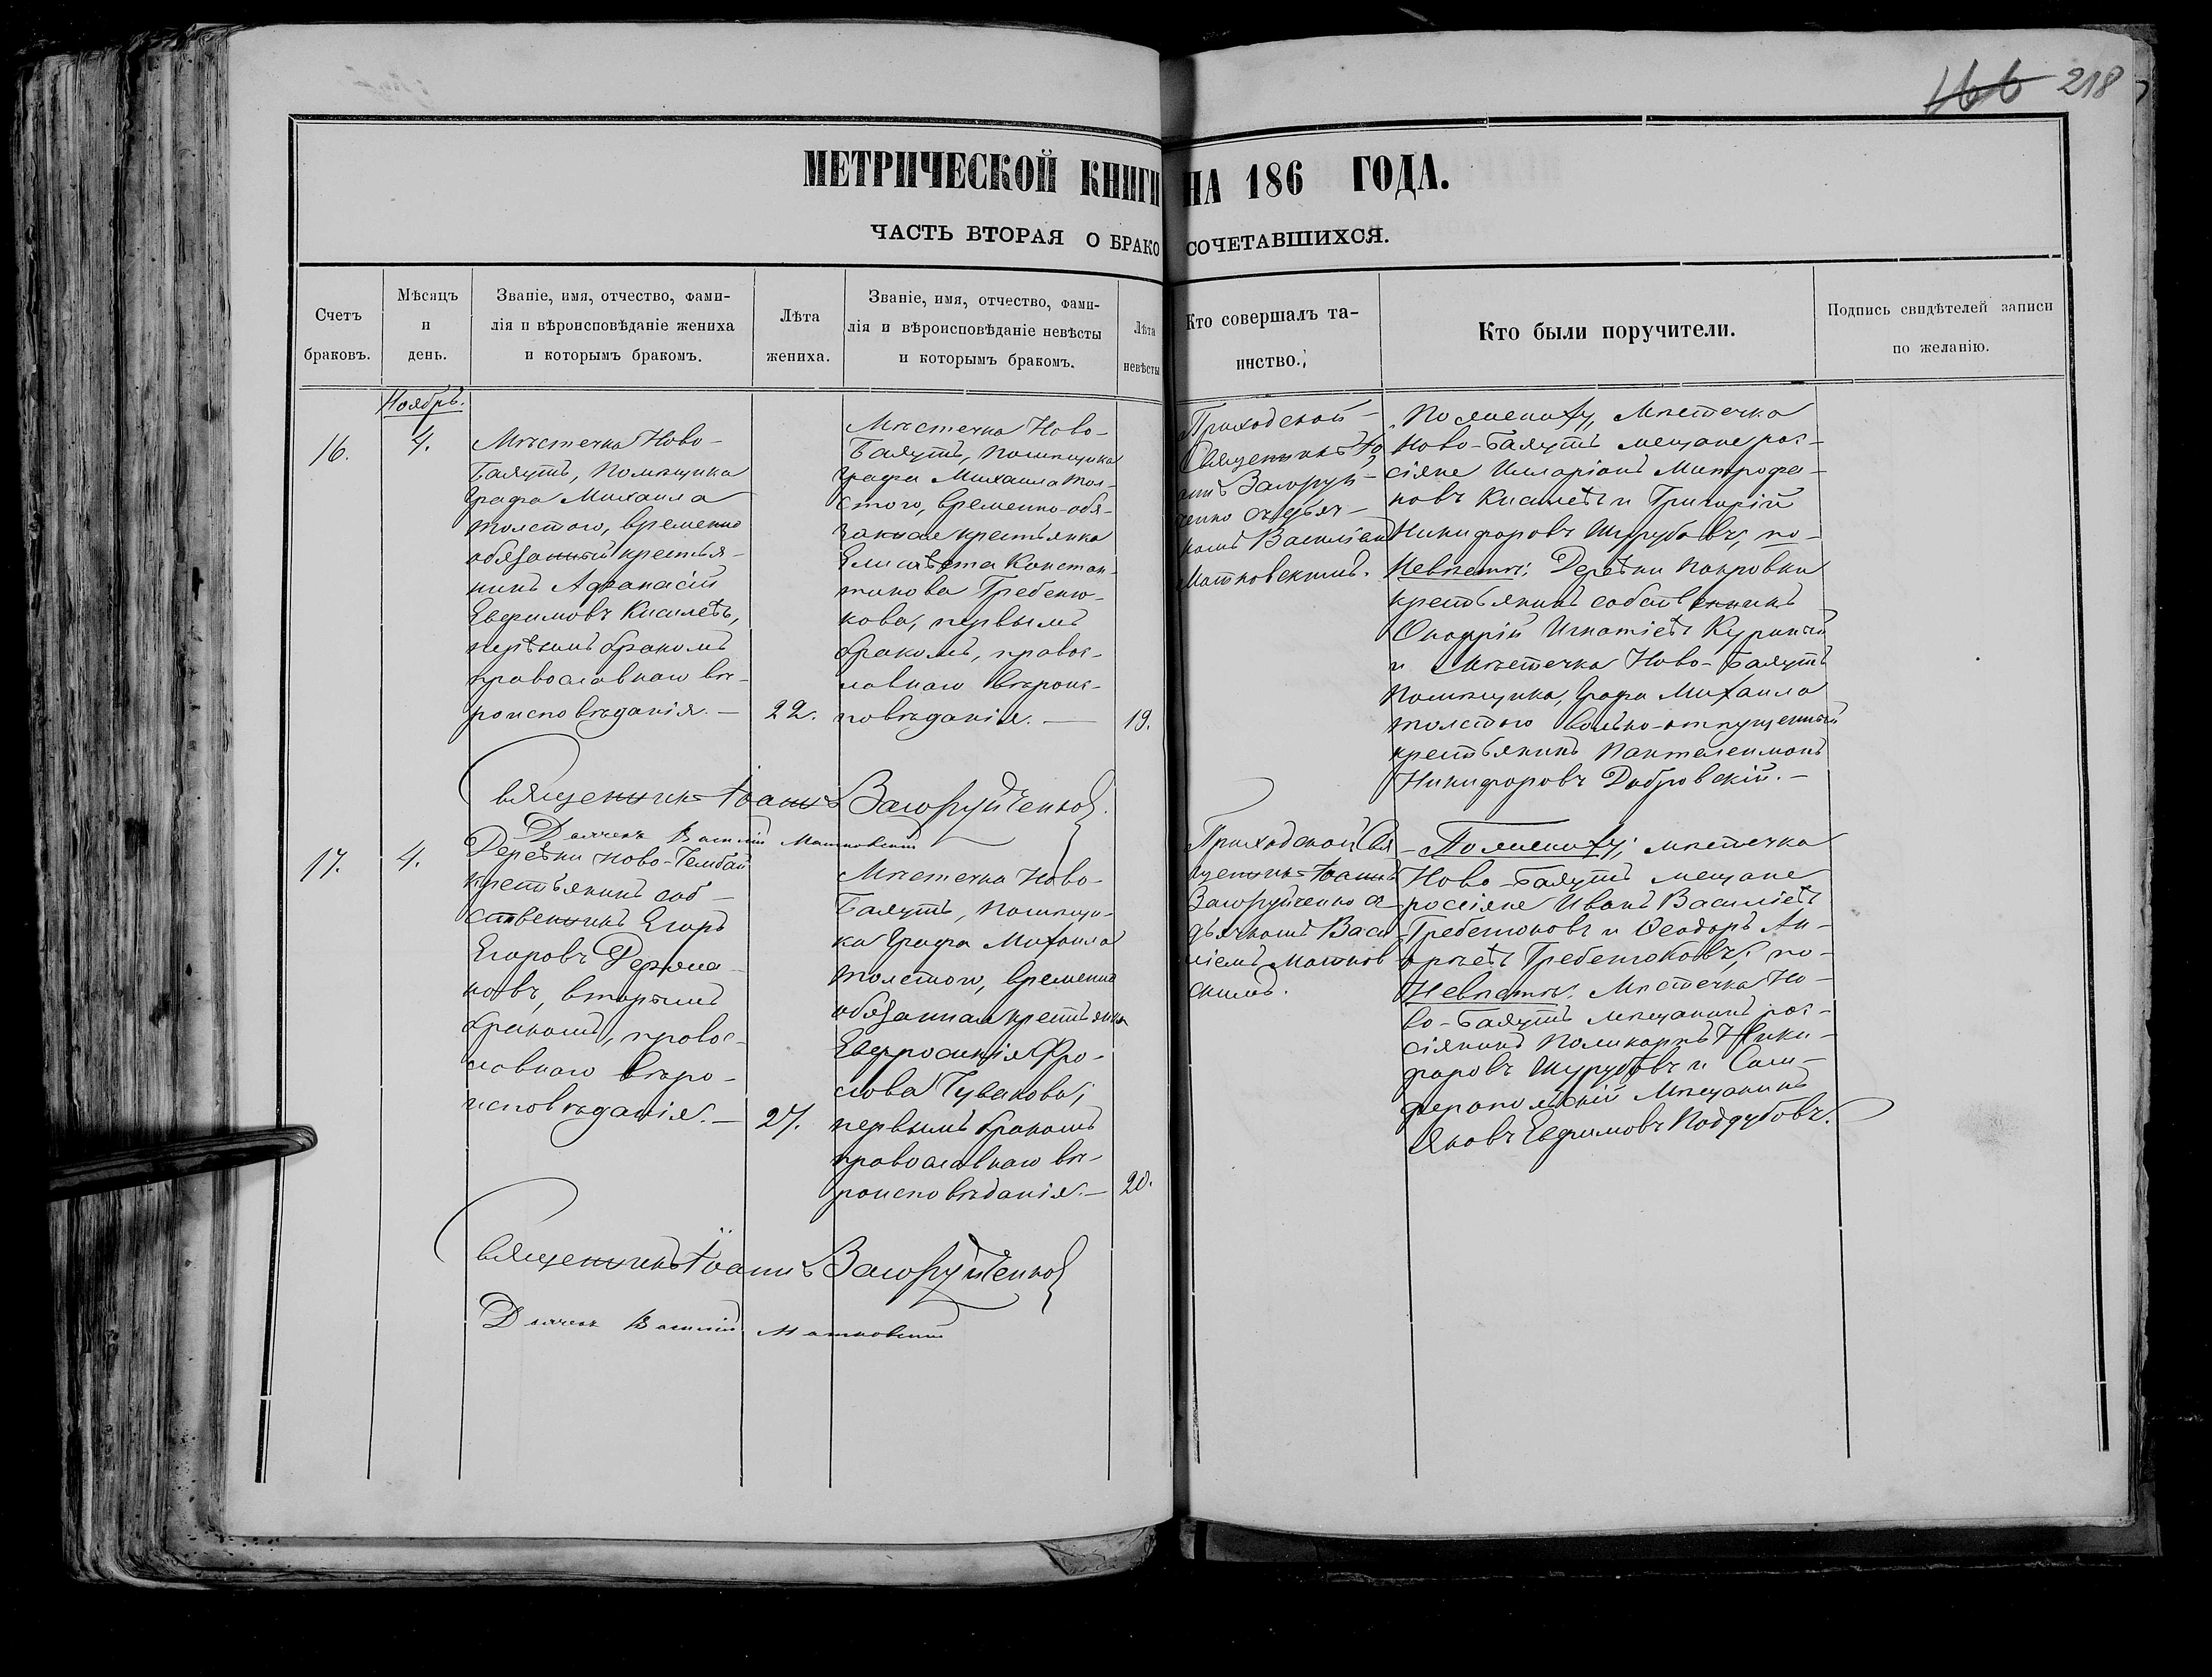 166 218
МЕТРИЧЕСКОЙ КНИГИ НА 186 ГОДА.
ЧАСТЬ ВТОРАЯ О БРАКОСОЧЕТАВШИХСЯ.
Счетъ
браковъ.
Мѣсяцъ
и
день.
Званіе, имя, отчество, фами-
лія и вѣроисповѣданіе жениха
и которымъ бракомъ.
Лѣта
жениха.
Званіе, имя, отчество, фами-
лія и вѣроисповѣданіе невѣсты
и которымъ бракомъ.
Лѣта
невѣсты
Кто совершалъ та-
инство.
Кто были поручители.
Подпись свидѣтелей записи
по желанію.
Ноябрь.
16.
4.
Мѣстечка Ново-
Помѣщика
Графа Михаила
Толстого, временно
обязанный крестья-
нинъ Афанасій
Евфимовъ Киселевъ,
первымъ бракомъ
православнаго вѣ-
роисповѣданія. —
22.
Мѣстечка Ново-
Помѣщика
Графа Михаила Тол-
стого, временно-обя-
занная крестьянка
Елисавета Констан-
тинова Гребеню-
кова, первымъ
бракомъ, правос-
лавнаго вѣроис-
повѣданія. —
19.
Приходской
Священникъ Іо
аннъ Загоруй-
ченко съ дьяч-
комъ Василіемъ
Матковскимъ.
По женихѣ, Мѣстечка
Ново- мещане рос-
сіяне Илларіонъ Митрофа-
новъ Киселевъ и Григорій
Никифоровъ Шурубовъ, по-
Невѣстѣ: Деревни Покровки
крестьянинъ собственникъ
Игнатіевъ
и Мѣстечка Ново-
Помѣщика, Графа Михаила
Толстого вольно-отпущенный
крестьянинъ Пантелеимонъ
Никифоровъ Добровскій. —
Священникъ Іоаннъ Загоруйченко
Дьячекъ Василій Матковскій
17.
4.
Деревни Ново-
крестьянинъ соб-
ственникъ Егоръ
Егоровъ
вторымъ
бракомъ, правос-
лавнаго вѣро-
исповѣданія. —
27.
Мѣстечка Ново-
Помѣщи-
ка Графа Михаила
Толстого, временно
обязанная крестьянка
Евфросинія Фро-
лова Чувакова,
первымъ бракомъ
православнаго вѣ-
роисповѣданія. —
20.
Приходской Свя
щенникъ Іоаннъ
Загоруйченко съ
дьячкомъ Васи
ліемъ Матков
скимъ.
По женихѣ; мѣстечка
Ново- мещане
россіяне Иванъ Василіевъ
Гребенюковъ и Ѳеодоръ Ан-
дреевъ Гребенюковъ; по-
Невѣстѣ: Мѣстечка Но-
во- Мѣщанинъ рос-
сіянинъ Поликарпъ Ники-
форовъ Шурубовъ и Сим-
феропольскій Мѣщанинъ
Яковъ Евфимовъ Поддубовъ.
Священникъ Іоаннъ Загоруйченко
Дьячекъ Василій Матковскій